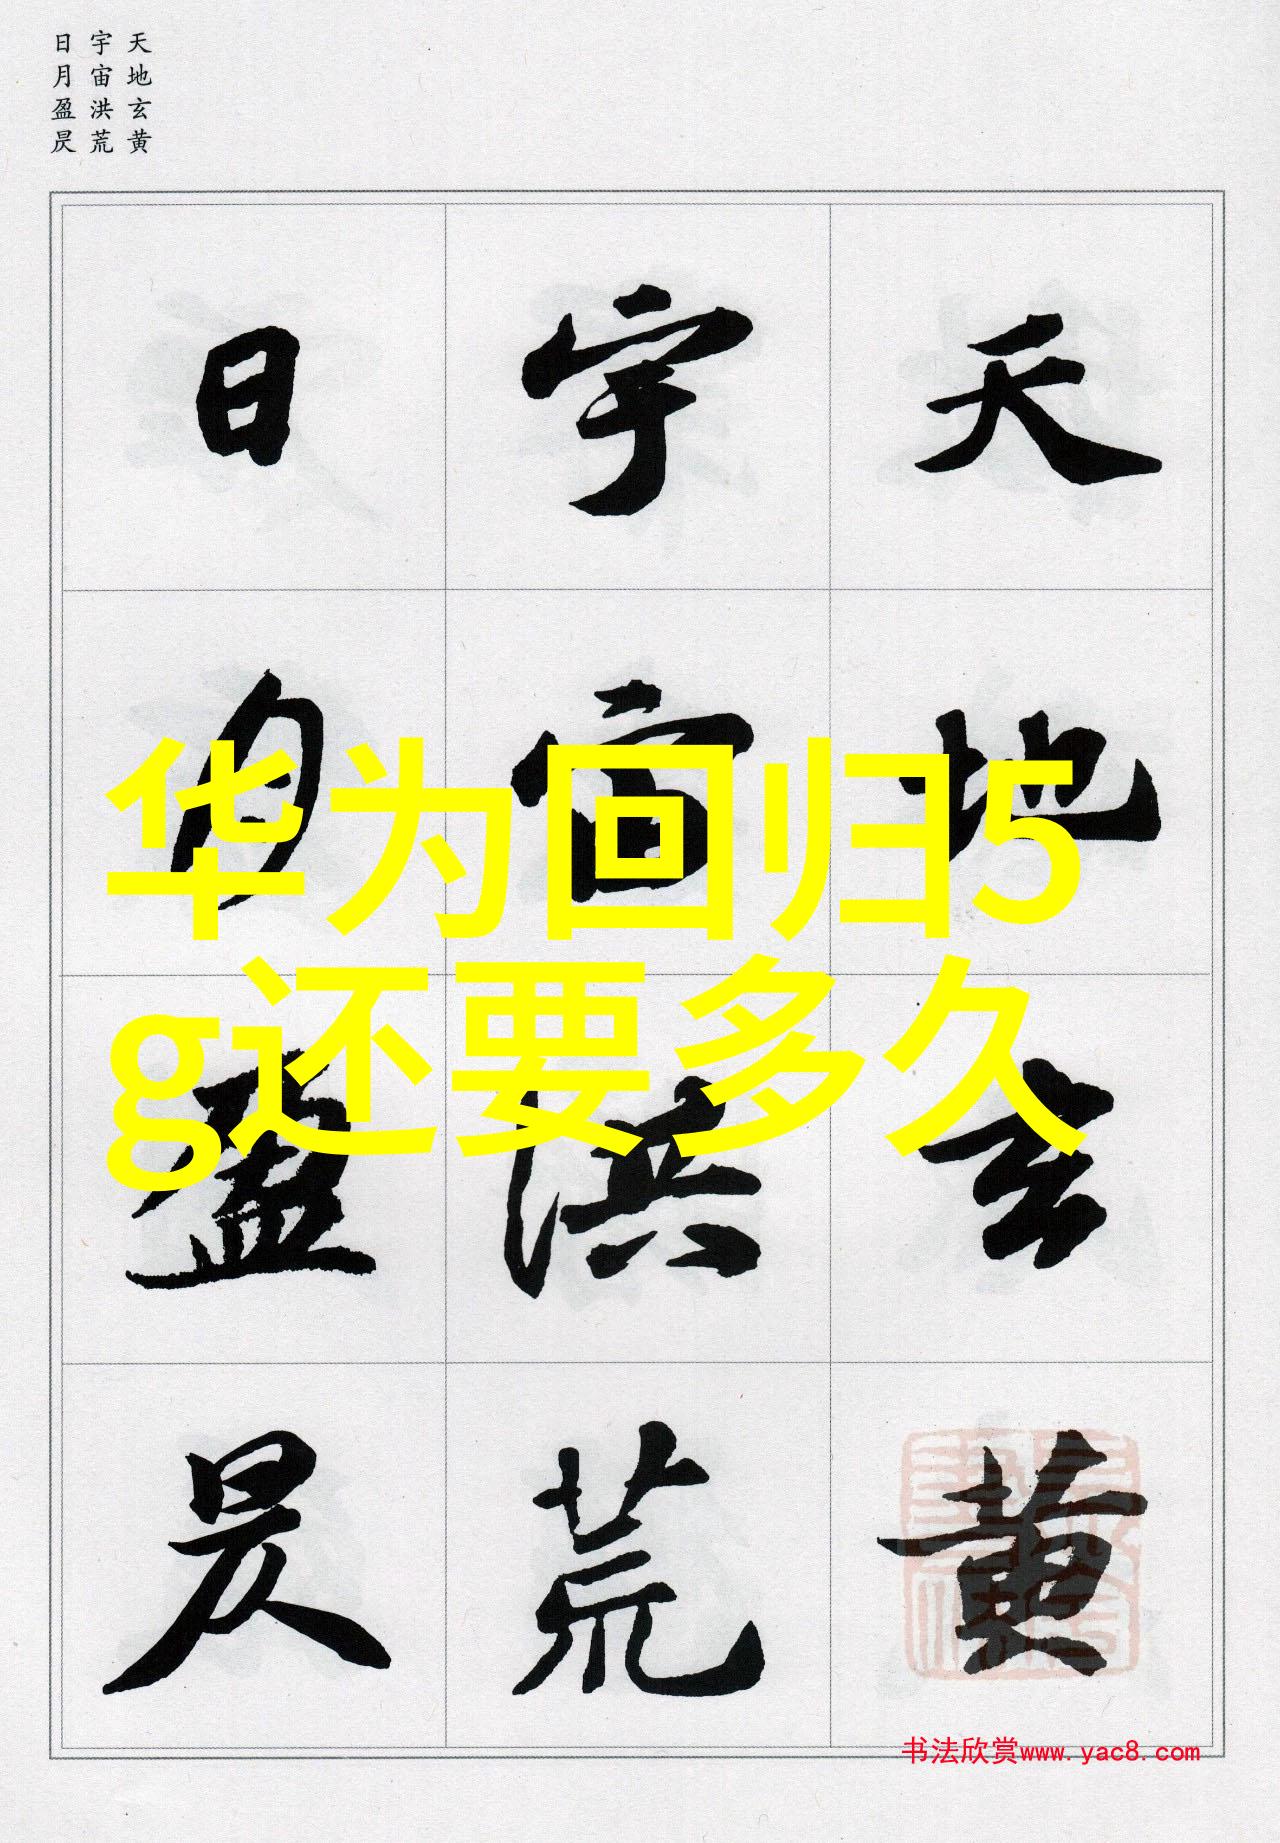 天地玄黄
宇宙洪荒
日月盈昃
天地玄黄
宇宙洪荒
日月盈昃
华为回归5
g还要多久
书法欣赏www.yac8.com